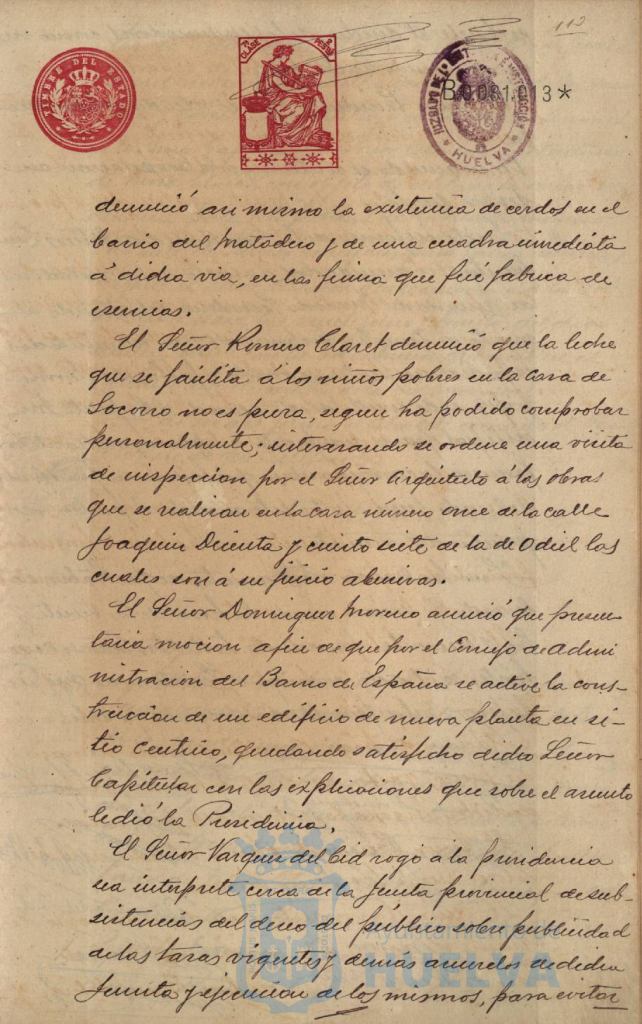 112
TIMBRE DEL ESTADO
7ª CLASE
JUZGADO DE 1ª INSTRUCCIÓN
HUELVA
B0081013*
denunció asi mismo la existencia de cerdos en el
barrio del Matadero y de una cuadra inmediata
á dicha via, en las finca que fué fabrica de
esencias.
El Señor Romero Claret denunció que la leche
que se facilita á los niños pobres en la Casa de
Socorro no es pura, segun ha podido comprobar
personalmente; interesando se ordene una visita
de inspeccion por el Señor Arquitecto á las obras
que se realizan en la casa número once de la calle
Joaquin Dicenta y ciento siete de la de Odiel las
cuales son á su juicio abusivas.
El Señor Dominguez Moreno anunció que presen-
taria mocion a fin de que por el Consejo de Admi
nistracion del Banco de España se active la cons-
truccion de un edificio de nueva planta en si-
tio centrico, quedando satisfecho dicho Señor
Capitular con las explicaciones que sobre el asunto
le dió la Presidencia.
El Señor Vazquez del Cid rogó a la presidencia
sea interprete cerca de la Junta provincial de sub-
sistencias del deseo del público sobre publicidad
de las tasas vigentes y demás acuerdos de dicha
Junta y ejecución de los mismos, para evitar
Ayuntamiento de
HUELVA